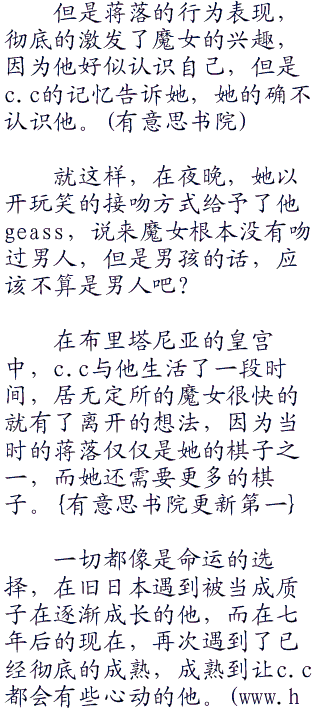 但是蒋落的行为表现，
彻底的激发了魔女的兴趣，
因为他好似认识自己，但是
c.c的记忆告诉她，她的确不
认识他。(有意思书院)
就这样，在夜晚，她以
开玩笑的接吻方式给予了他
geass，说来魔女根本没有吻
过男人，但是男孩的话，应
该不算是男人吧？
在布里塔尼亚的皇宫
中，c.c与他生活了一段时
间，居无定所的魔女很快的
就有了离开的想法，因为当
时的蒋落仅仅是她的棋子之
一，而她还需要更多的棋
子。{有意思书院更新第一}
一切都像是命运的选
择，在旧日本遇到被当成质
子在逐渐成长的他，而在七
年后的现在，再次遇到了已
经彻底的成熟，成熟到让c.c
都会有些心动的他。(www.h